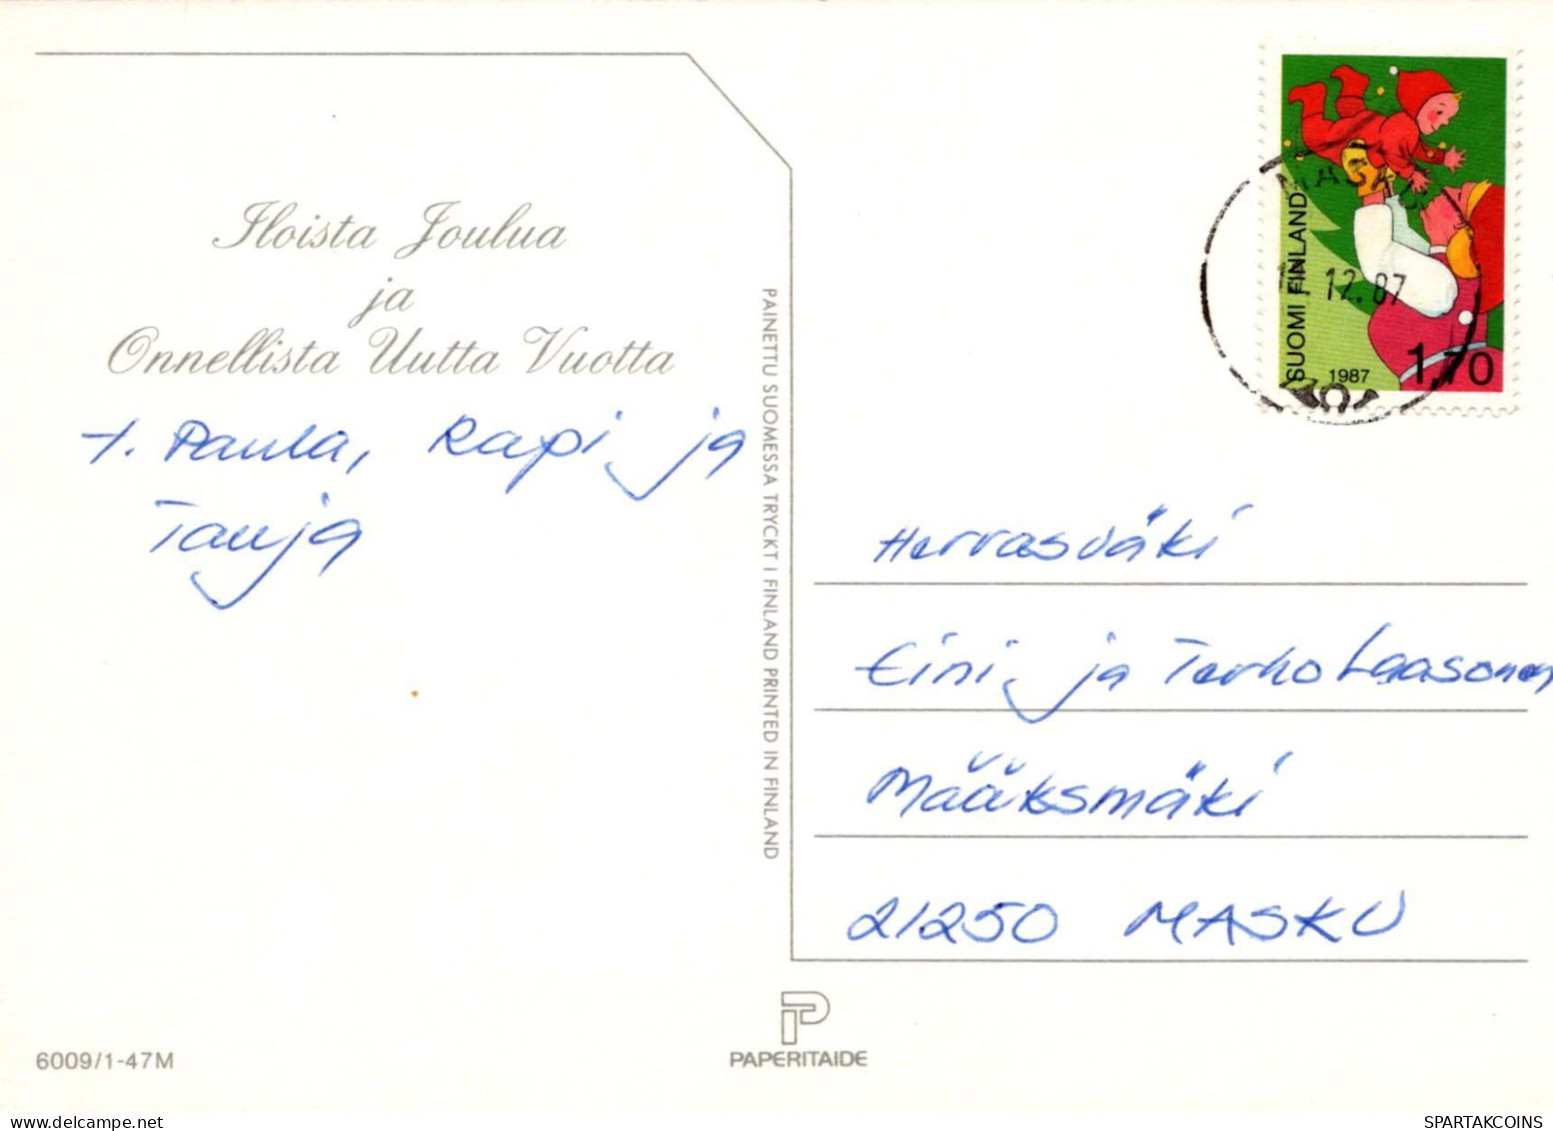 Iloista Joulua
ja
Onnellista Uutta Vuotta
t. Paula, Rapi ja
Tanja
PAINETTU SUOMESSA TRYCKT I FINLAND PRINTED IN FINLAND
SUOMI FINLAND
1987
1,70
MASKU
12.87
Herrasväki
Eini ja Terho Laasonen
Määksmäki
21250 MASKU
PAPERITAIDE
6009/1-47M
delcampe.net
SPARTAKCOINS